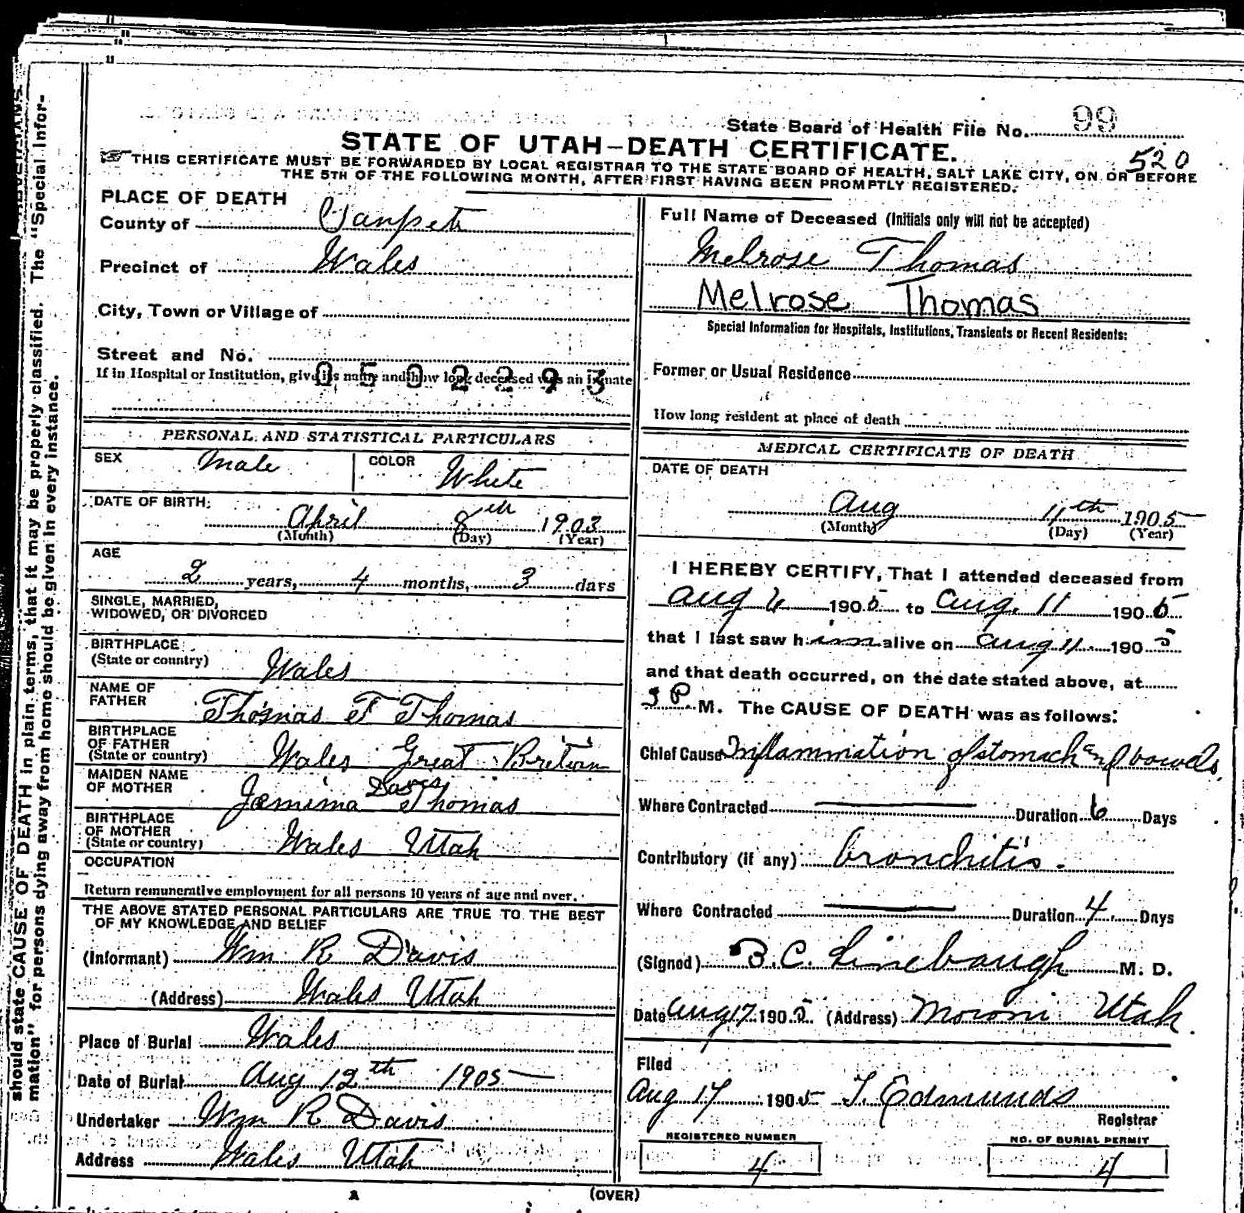 State Board of Health File No. 99
STATE OF UTAH–DEATH CERTIFICATE.
520
THIS CERTIFICATE MUST BE FORWARDED BY LOCAL REGISTRAR TO THE STATE BOARD OF HEALTH, SALT LAKE CITY, ON OR BEFORE
THE 5TH OF THE FOLLOWING MONTH, AFTER FIRST HAVING BEEN PROMPTLY REGISTERED.
should state CAUSE OF DEATH in plain terms, that it may be properly classified. The "Special Infor-
mation" for persons dying away from home should be given in every instance.
PLACE OF DEATH
County of Sanpete
Precinct of Wales
City, Town or Village of
Street and No.
If in Hospital or Institution, give its name and how long deceased was an inmate
0502293
PERSONAL AND STATISTICAL PARTICULARS
SEX Male COLOR White
DATE OF BIRTH: April 8th 1903
(Month) (Day) (Year)
AGE
2 years, 4 months, 3 days
SINGLE, MARRIED,
WIDOWED, OR DIVORCED
BIRTHPLACE
(State or country) Wales
NAME OF
FATHER Thomas F Thomas
BIRTHPLACE
OF FATHER
(State or country) Wales Great Britian
MAIDEN NAME
OF MOTHER Jemima Davis Thomas
BIRTHPLACE
OF MOTHER
(State or country) Wales Utah
OCCUPATION
Return remunerative employment for all persons 10 years of age and over.
THE ABOVE STATED PERSONAL PARTICULARS ARE TRUE TO THE BEST
OF MY KNOWLEDGE AND BELIEF
(Informant) Wm R Davis
(Address) Wales Utah
Place of Burial Wales
Date of Burial Aug 12th 1905
Undertaker Wm R Davis
Address Wales Utah
Full Name of Deceased (Initials only will not be accepted)
Melrose Thomas
Melrose Thomas
Special Information for Hospitals, Institutions, Transients or Recent Residents:
Former or Usual Residence
How long resident at place of death
MEDICAL CERTIFICATE OF DEATH
DATE OF DEATH
Aug 11th 1905
(Month) (Day) (Year)
I HEREBY CERTIFY, That I attended deceased from
Aug 6 1905 to Aug. 11 1905
that I last saw him alive on Aug 11. 1905
and that death occurred, on the date stated above, at
3 P. M. The CAUSE OF DEATH was as follows:
Chief Cause Inflammation of stomach and bowels.
Where Contracted Duration 6 Days
Contributory (if any) bronchitis.
Where Contracted Duration 4 Days
(Signed) B.C. Linebaugh M. D.
Date Aug 17 1905. (Address) Moroni Utah.
Filed
Aug 17 1905 T. Edmunds
Registrar
REGISTERED NUMBER
4
NO. OF BURIAL PERMIT
4
(OVER)